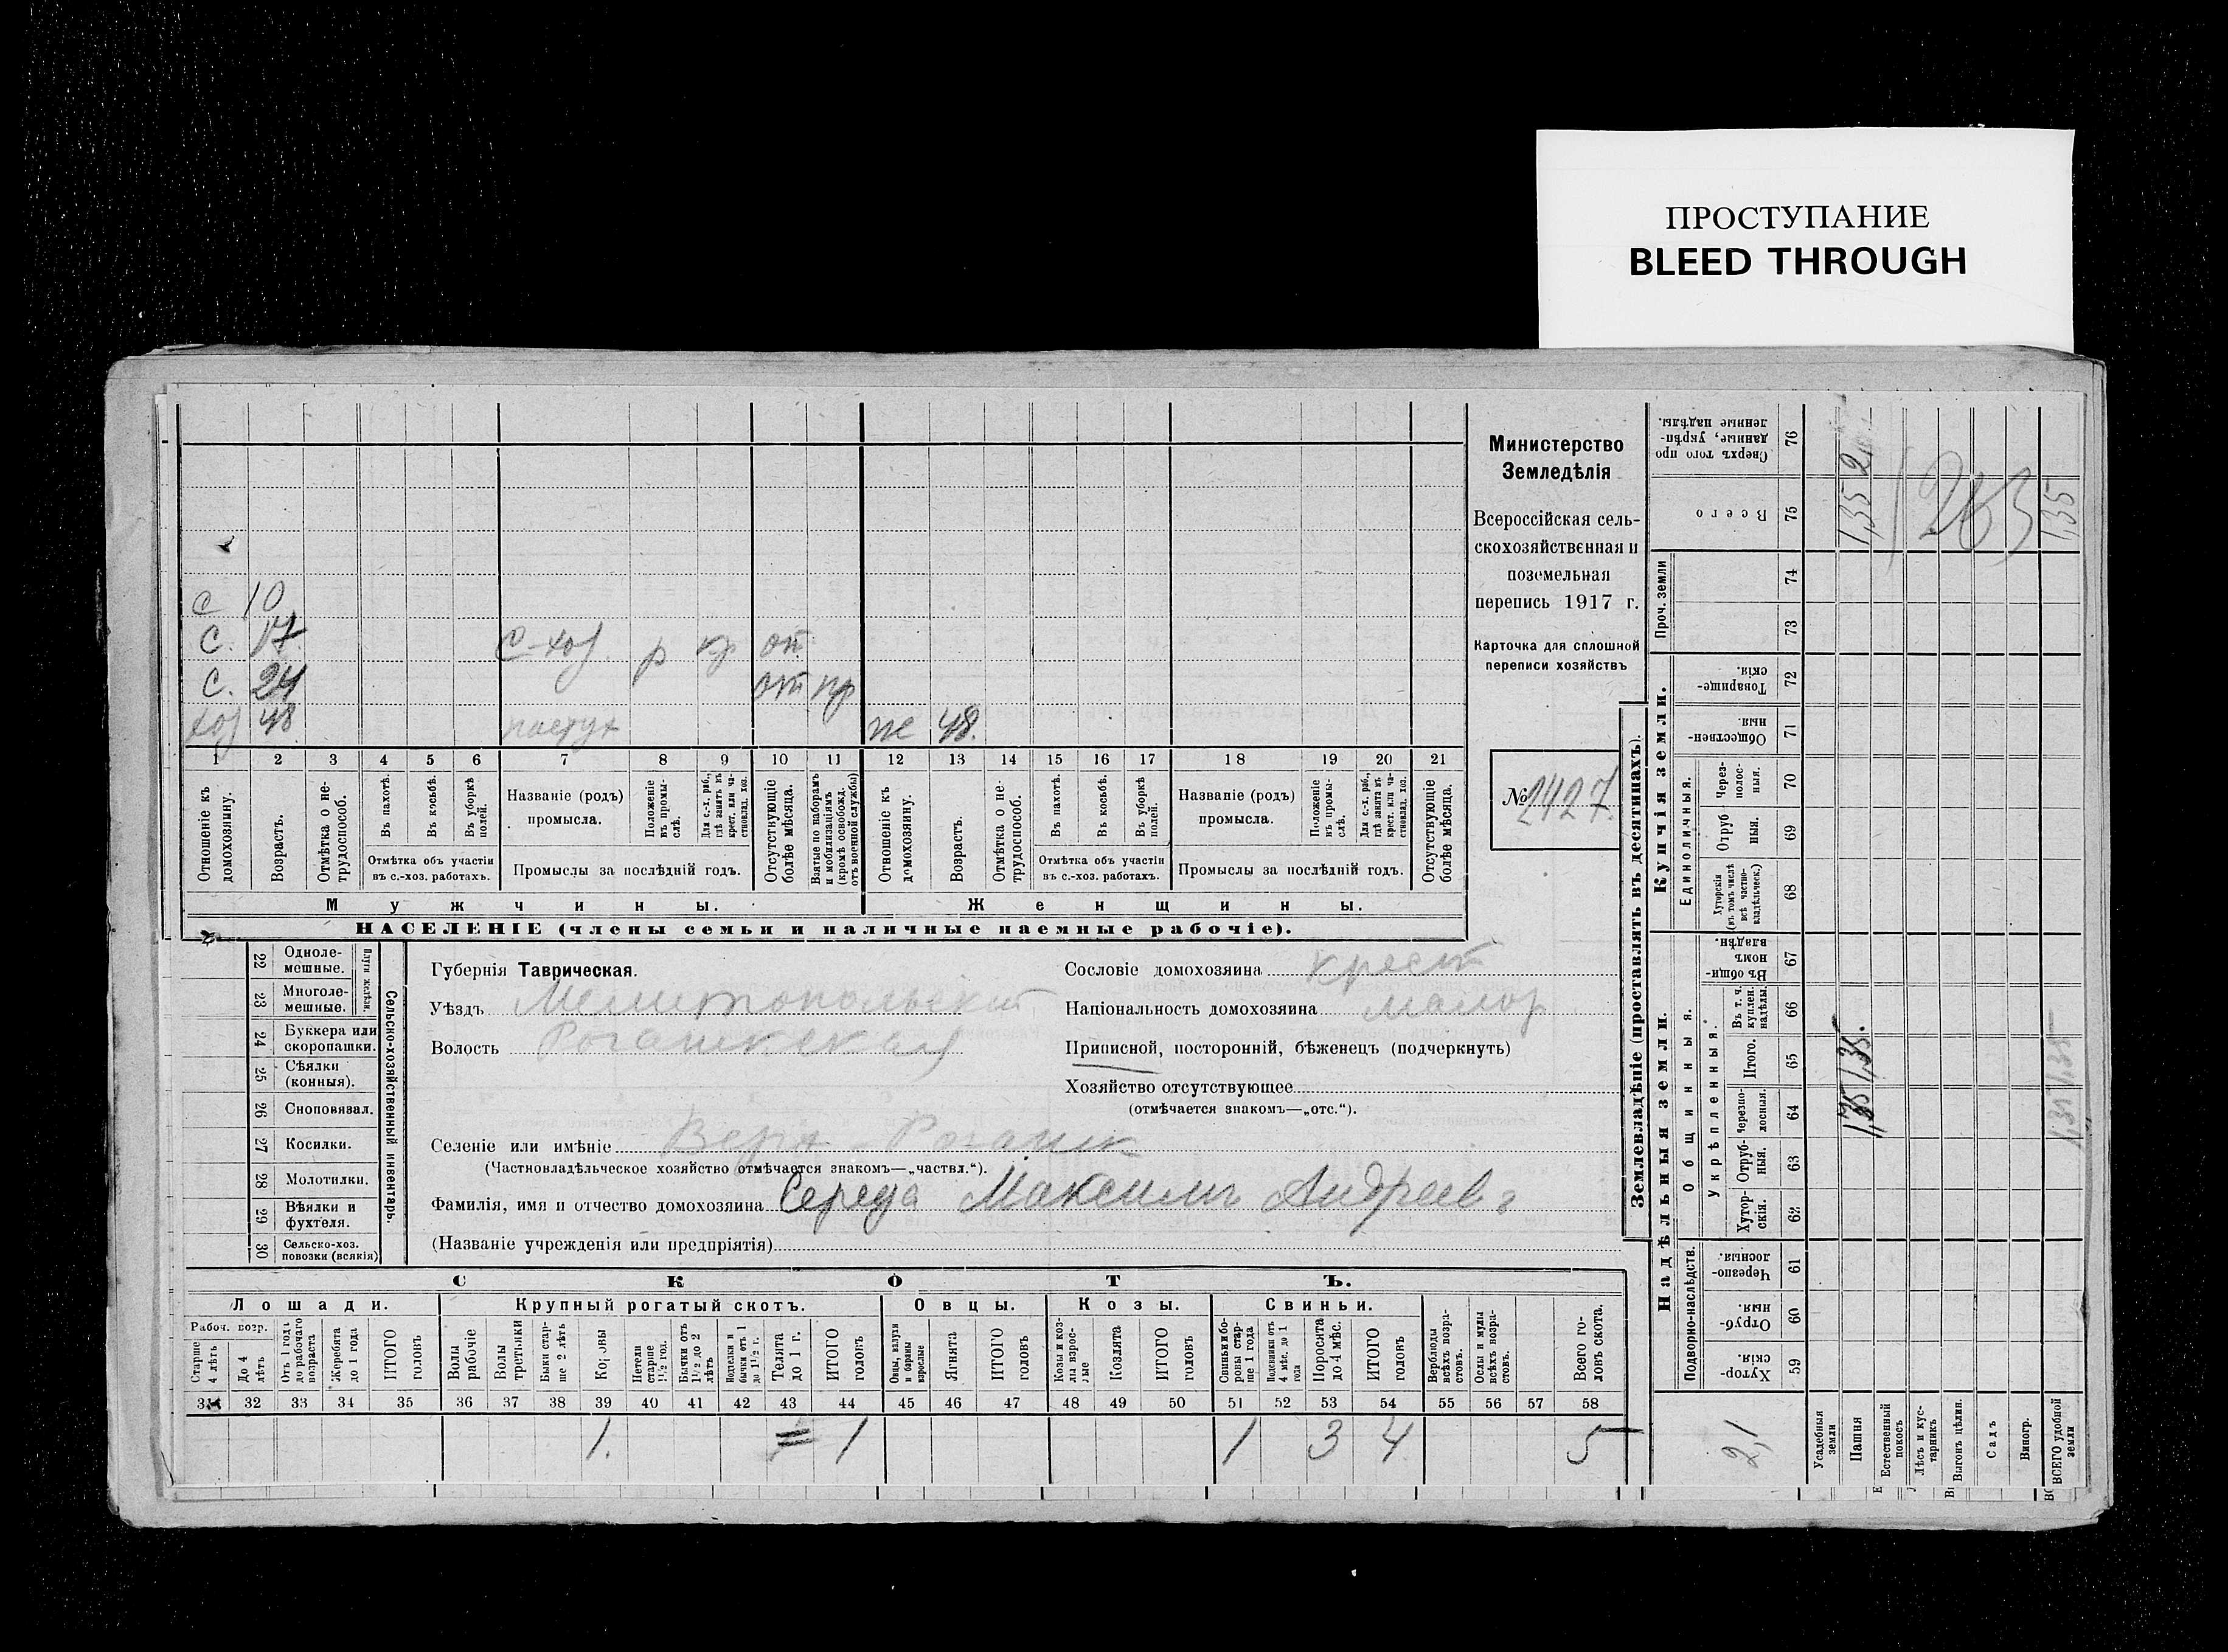 ПРОСТУПАНИЕ
BLEED THROUGH
Министерство
Земледѣлія
Всероссійская сель-
скохозяйственная и
поземельная
перепись 1917 г.
Карточка для сплошной
переписи хозяйствъ
№ 2427.
с 10
с. 17 с-хоз. р кр от
с. 24 от пр
хоз 48 пастух же 48.
1 2 3 4 5 6 7 8 9 10 11 12 13 14 15 16 17 18 19 20 21
Отношеніе къ домохозяину.
Возрастъ.
Отмѣтка о не-трудоспособ.
Въ пахотѣ.
Въ косьбѣ.
Въ уборкѣ полей.
Отмѣтка объ участіи
въ с.-хоз. работахъ.
Названіе (родъ)
промысла.
Положеніе въ промы-слѣ.
Для с.-х. раб., гдѣ занятъ въ крест. или ча-стновлад. хоз.
Промыслы за послѣдній годъ.
Отсутствующіе болѣе мѣсяца.
Взятые по наборамъ и мобилизаціямъ (кромѣ освобожд. отъ военной службы)
Отношеніе къ домохозяину.
Возрастъ.
Отмѣтка о не-трудоспособ.
Въ пахотѣ.
Въ косьбѣ.
Въ уборкѣ полей.
Отмѣтка объ участіи
въ с.-хоз. работахъ.
Названіе (родъ)
промысла.
Положеніе въ промы-слѣ.
Для с.-х. раб., гдѣ занята въ крест. или ча-стновлад. хоз.
Промыслы за послѣдній годъ.
Отсутствующіе болѣе мѣсяца.
Мужчины. Женщины.
НАСЕЛЕНІЕ (члены семьи и наличные наемные рабочіе).
22 Одноле-мешные.
23 Многоле-мешные.
Плуги желѣзн.
24 Буккера или скоропашки.
25 Сѣялки (конныя).
26 Сноповязал.
27 Косилки.
28 Молотилки.
29 Вѣялки и фухтеля.
30 Сельско-хоз. повозки (всякія)
Сельско-хозяйственный инвентарь.
Губернія Таврическая.
Уѣздъ Мелитопольскій
Волость Рогачикская
Сословіе домохозяина крест
Національность домохозяина малор
Приписной, посторонній, бѣженецъ (подчеркнуть)
Хозяйство отсутствующее
(отмѣчается знакомъ—„отс.“).
Селеніе или имѣніе Верх Рогачик
(Частновладѣльческое хозяйство отмѣчается знакомъ—„частвл.“).
Фамилія, имя и отчество домохозяина Середа Максимъ Андреев
(Названіе учрежденія или предпріятія)
СКОТЪ.
Лошади. Крупный рогатый скотъ. Овцы. Козы. Свиньи.
Рабоч. возр.
Старше 4 лѣтъ
До 4 лѣтъ
Отъ 1 года до рабочаго возраста
Жеребята до 1 года
ИТОГО головъ
Волы рабочіе
Волы третьяки
Быки стар-ше 2 лѣтъ
Коровы
Нетели старше 1½ год.
Бычки отъ 1½ до 2 лѣтъ
Телята до 1 г.
ИТОГО головъ
Ягнята
ИТОГО головъ
Козы и коз-лы взрос-лые
Козлята
ИТОГО головъ
Поросята до 4 мѣс.
ИТОГО головъ
Верблюды всѣхъ возра-стовъ.
Ослы и мулы всѣхъ возра-стовъ.
Всего го-ловъ скота.
31 32 33 34 35 36 37 38 39 40 41 42 43 44 45 46 47 48 49 50 51 52 53 54 55 56 57 58
1. 1 1 3 4 5
Землевладѣніе (проставлять въ десятинахъ).
Сверхъ того про данные, укрѣп-ленные надѣлы. 76
Всего 75
Проч. земли 74 73
Купчія земли.
Товарище-скія 72
Обществен-ныя 71
Единоличныя.
Через-полос-ныя. 70
Отруб ныя. 69
Хуторскія (въ томъ числѣ всѣ частно-владѣльческ.) 68
Надѣльныя земли.
Общинныя.
Въ общин-номъ владѣн. 67
Укрѣпленныя.
Въ т. ч. куплен. надѣлы. 66
Итого. 65
Черезпо-лосныя. 64
Отруб-ныя. 63
Хутор-скія. 62
Подворно-наслѣдств.
Черезпо-лосныя. 61
Отруб-ныя. 60
Хутор-скія 59
Усадебныя земли
Пашня
Естественный покосъ
Лѣсъ и кус-тарникъ
Выгонъ цѣлин.
Садъ
Виногр.
ВСЕГО удобной земли
1,35 1,35. 1,35
263
1,35 1,35 1,35
2,1